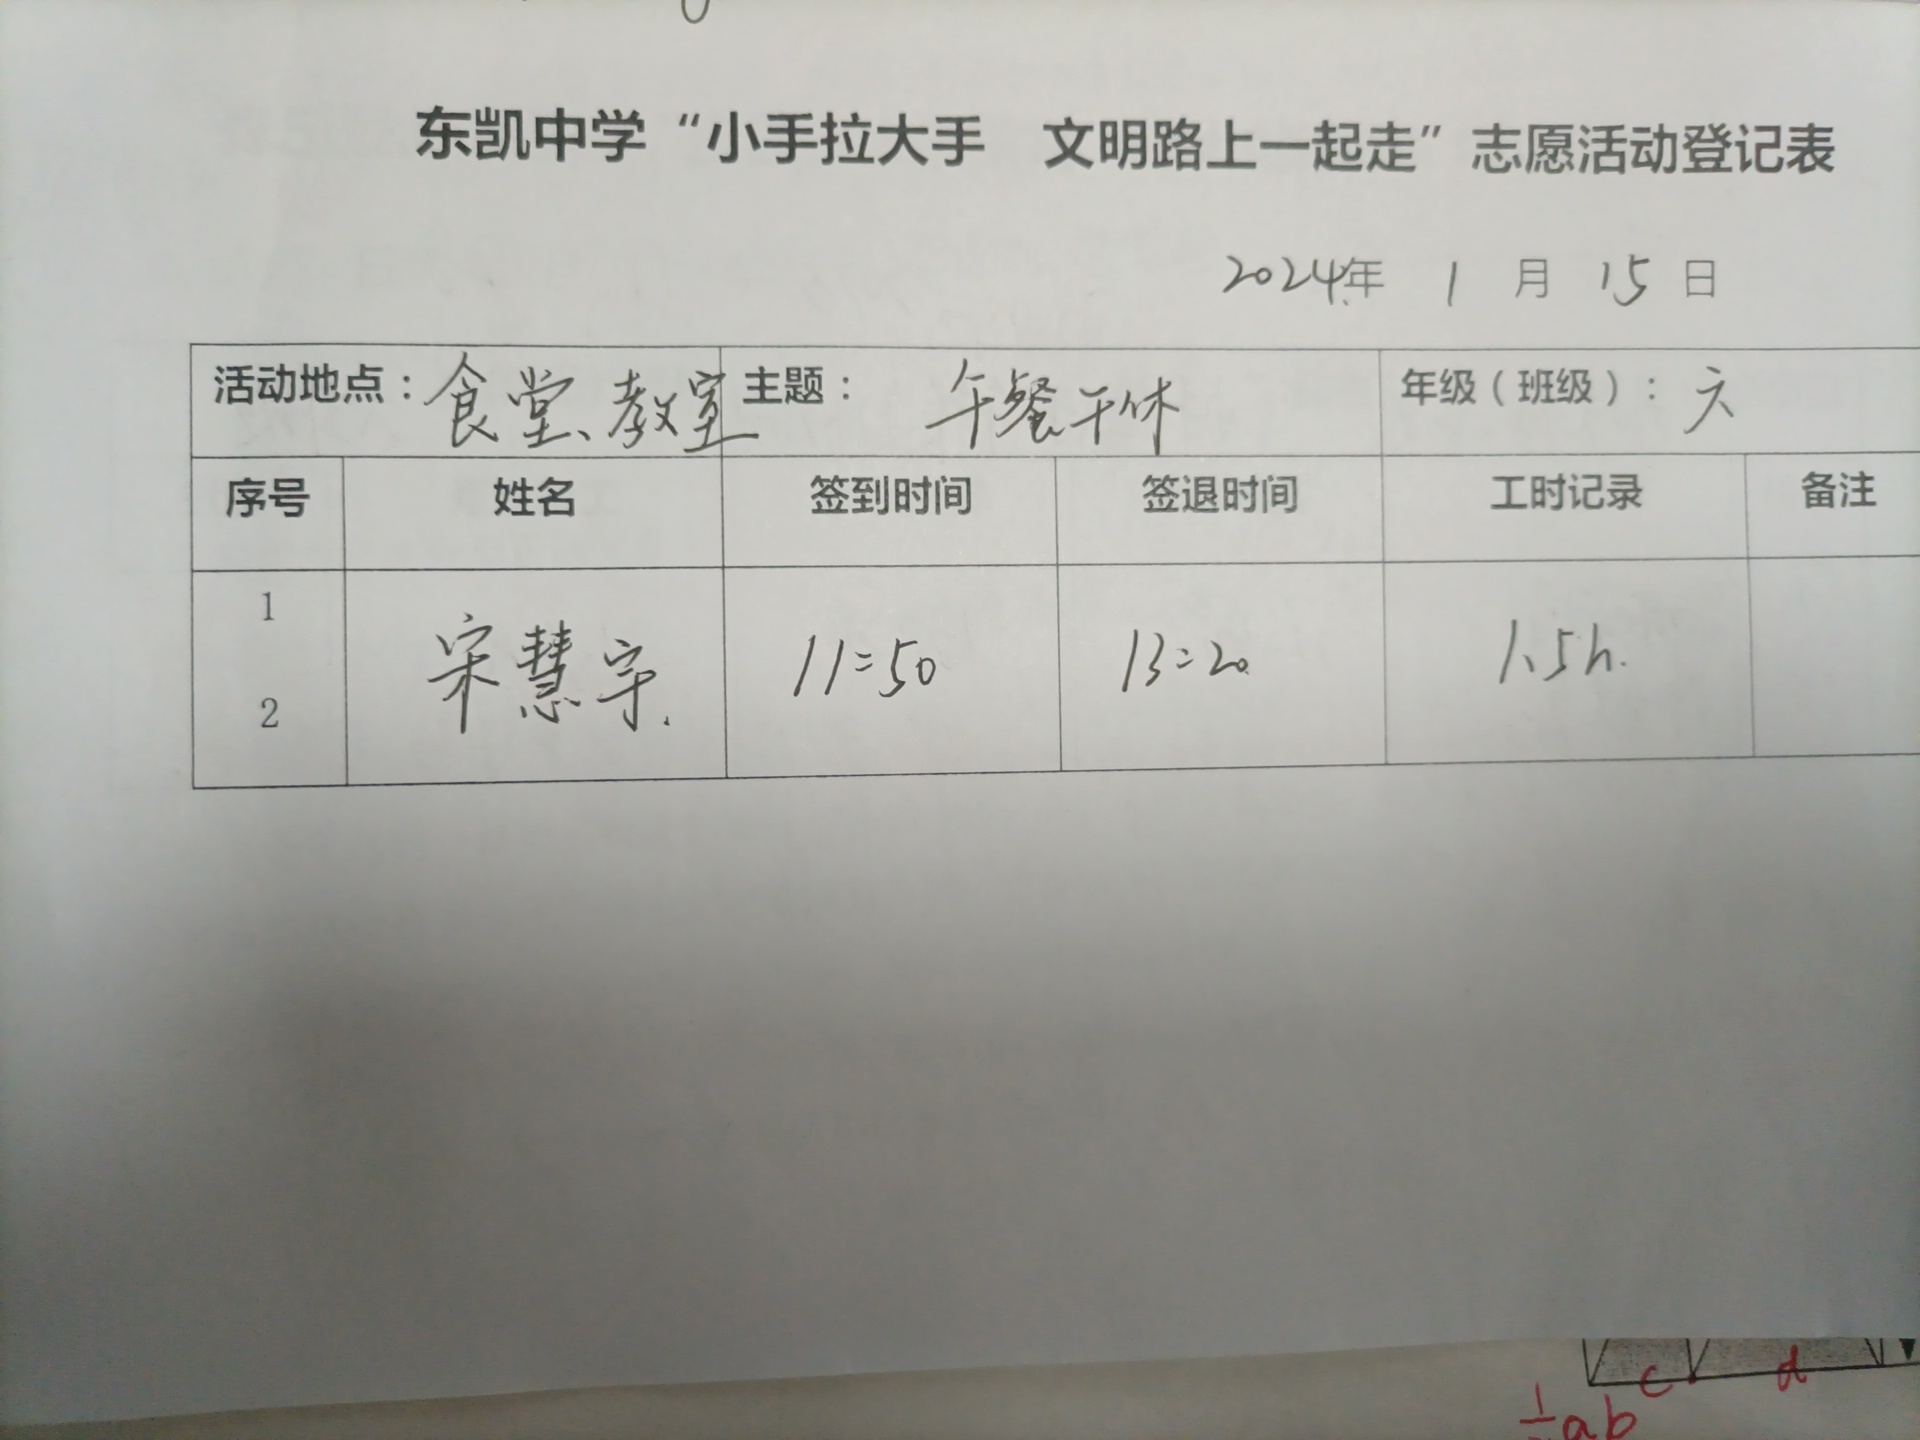 东凯中学“小手拉大手 文明路上一起走”志愿活动登记表
2024年 1 月 15 日
活动地点：食堂、教室 主题： 午餐午休 年级（班级）：六
序号 姓名 签到时间 签退时间 工时记录 备注
1
宋慧宇. 11=50 13=20 1.5h.
2
c d
1 ab